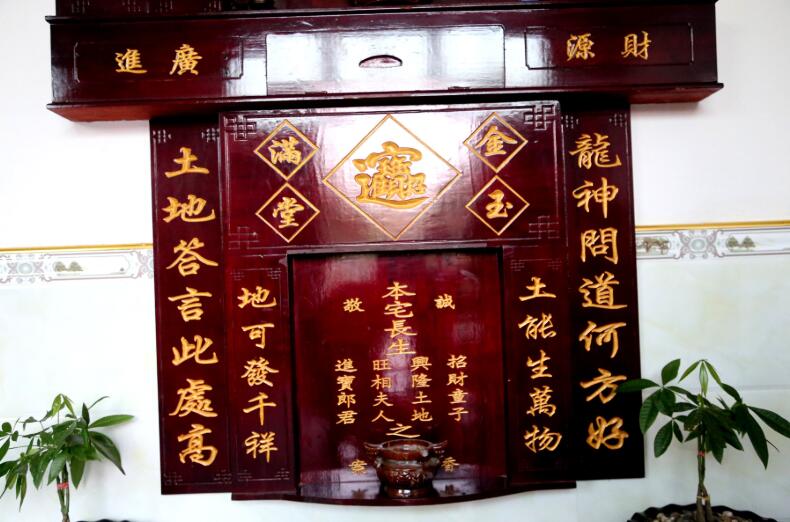 財源
廣進
金玉
滿堂
招財進寶
龍神問道何方好
土地答言此處高
土能生萬物
地可發千祥
誠敬
招財童子
興隆土地
本宅長生
之
旺相夫人
進寶郎君
香